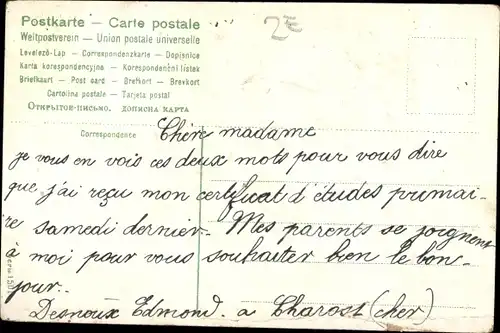 Postkarte — Carte postale
2€
Weltpostverein — Union postale universelle
Levelező-Lap — Correspondenzkarte — Dopisnice
Karta korespondencyjna — Korespondenční lístek
Briefkaart — Post card — Brefkort — Brevkort
Cartolina postale — Tarjeta postal
Открытое-письмо. ДОПИСНА КАРТА
Correspondence
Chère madame
je vous en vois ces deux mots pour vous dire
que j'ai reçu mon certificat d'études primai-
re samedi dernier. Mes parents se joignent
à moi pour vous souhaiter bien le bon-
jour.
Desnoux Edmond. a Charost (cher)